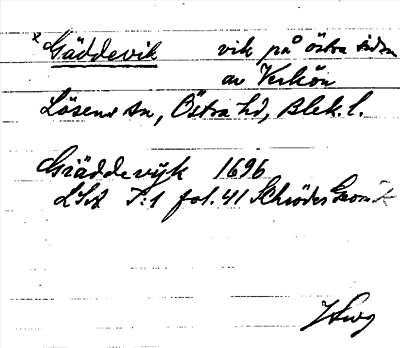 x Gäddevik vik på östra sidan
av Verkön
Lösens sn, Östra hd, Blek. l.
Giäddevijk 1696
LSA T:1 fol. 41 Schröders Geom